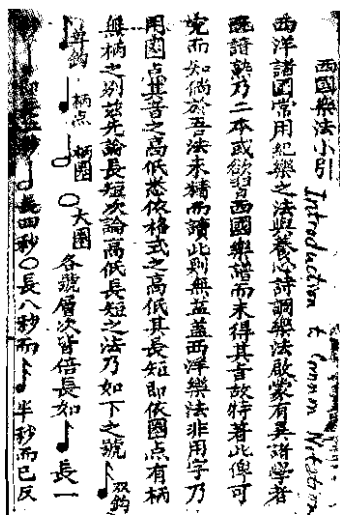 西國樂法小引
Introduction to Common Notation
西洋諸國常用紀樂之法與養心詩調樂法啟蒙有異諸學者
既諳熟乃二本或欲習西國樂譜而未得其旨故特著此俾可
覽而知倘於吾法未精而讀此則無益蓋西洋樂法非用字乃
用圈点其音之高低悉依格式之高低其長短即依圈点有柄
無柄之別茲先論長短次論高低長短之法乃如下之號 双鈎
单鈎 柄点 柄圈 大圈 各號層次皆倍長如 長一
長四秒 長八秒而 半秒而已反